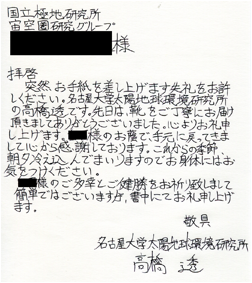 国立極地研究所
宙空圏研究グループ
様
拝啓
突然、お手紙を差し上げます失礼をお許
しください。名古屋大学太陽地球環境研究所
の高橋透です。先日は、靴をご丁寧にお届け
頂きましてありがとうございました。心よりお礼申
し上げます。様のお蔭で、手元に戻ってきま
して心から感謝しております。これからの季節
朝夕冷え込んでまいりますのでお身体にはお
気をつけください。
様のご多幸とご健勝をお祈り致しまして
簡単ではございますが、書中にてお礼申し上げ
ます。
敬具
名古屋大学太陽地球環境研究所
高橋 透